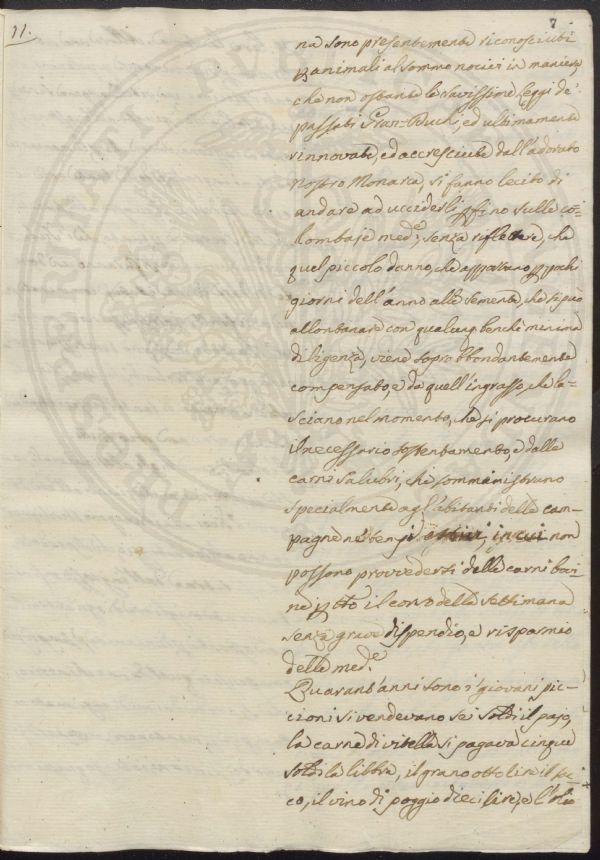 11.
7
na sono presentemente riconosciuti
p animali al sommo nocivi in maniera,
che non ostante le savissime Leggi de'
passati Gran-Duchi, ed ultimamente
rinnovate, ed accresciute dall'adorato
Nostro Monarca, si fanno lecito di
andare ad ucciderli fino sulle co-
lombaje med.e senza riflettere, che
quel piccolo danno, che apportano p pochi
giorni dell'anno alle semente, che si può
allontanare con qualunq benchè minima
diligenza, viene soprabbondantemente
compensato, e da quell'ingrasso, che la-
sciano nel momento, che si procurano
il necessario sostentamento, e dalle
carni salubri, che somministrano
specialmente agl'abitanti delle cam-
pagne ne' tempi estivi, in cui non
possono provvedersi delle carni bovi-
ne p tto il corso della settimana
senza grave dispendio, e risparmio
delle med.e
Quarant'anni sono i giovani pic-
cioni si vendevano sei soldi il pajo,
la carne di vitella si pagava cinque
soldi la libbra, il grano otto lire il sac-
co, il vino di poggio dieci lire, e l'olio